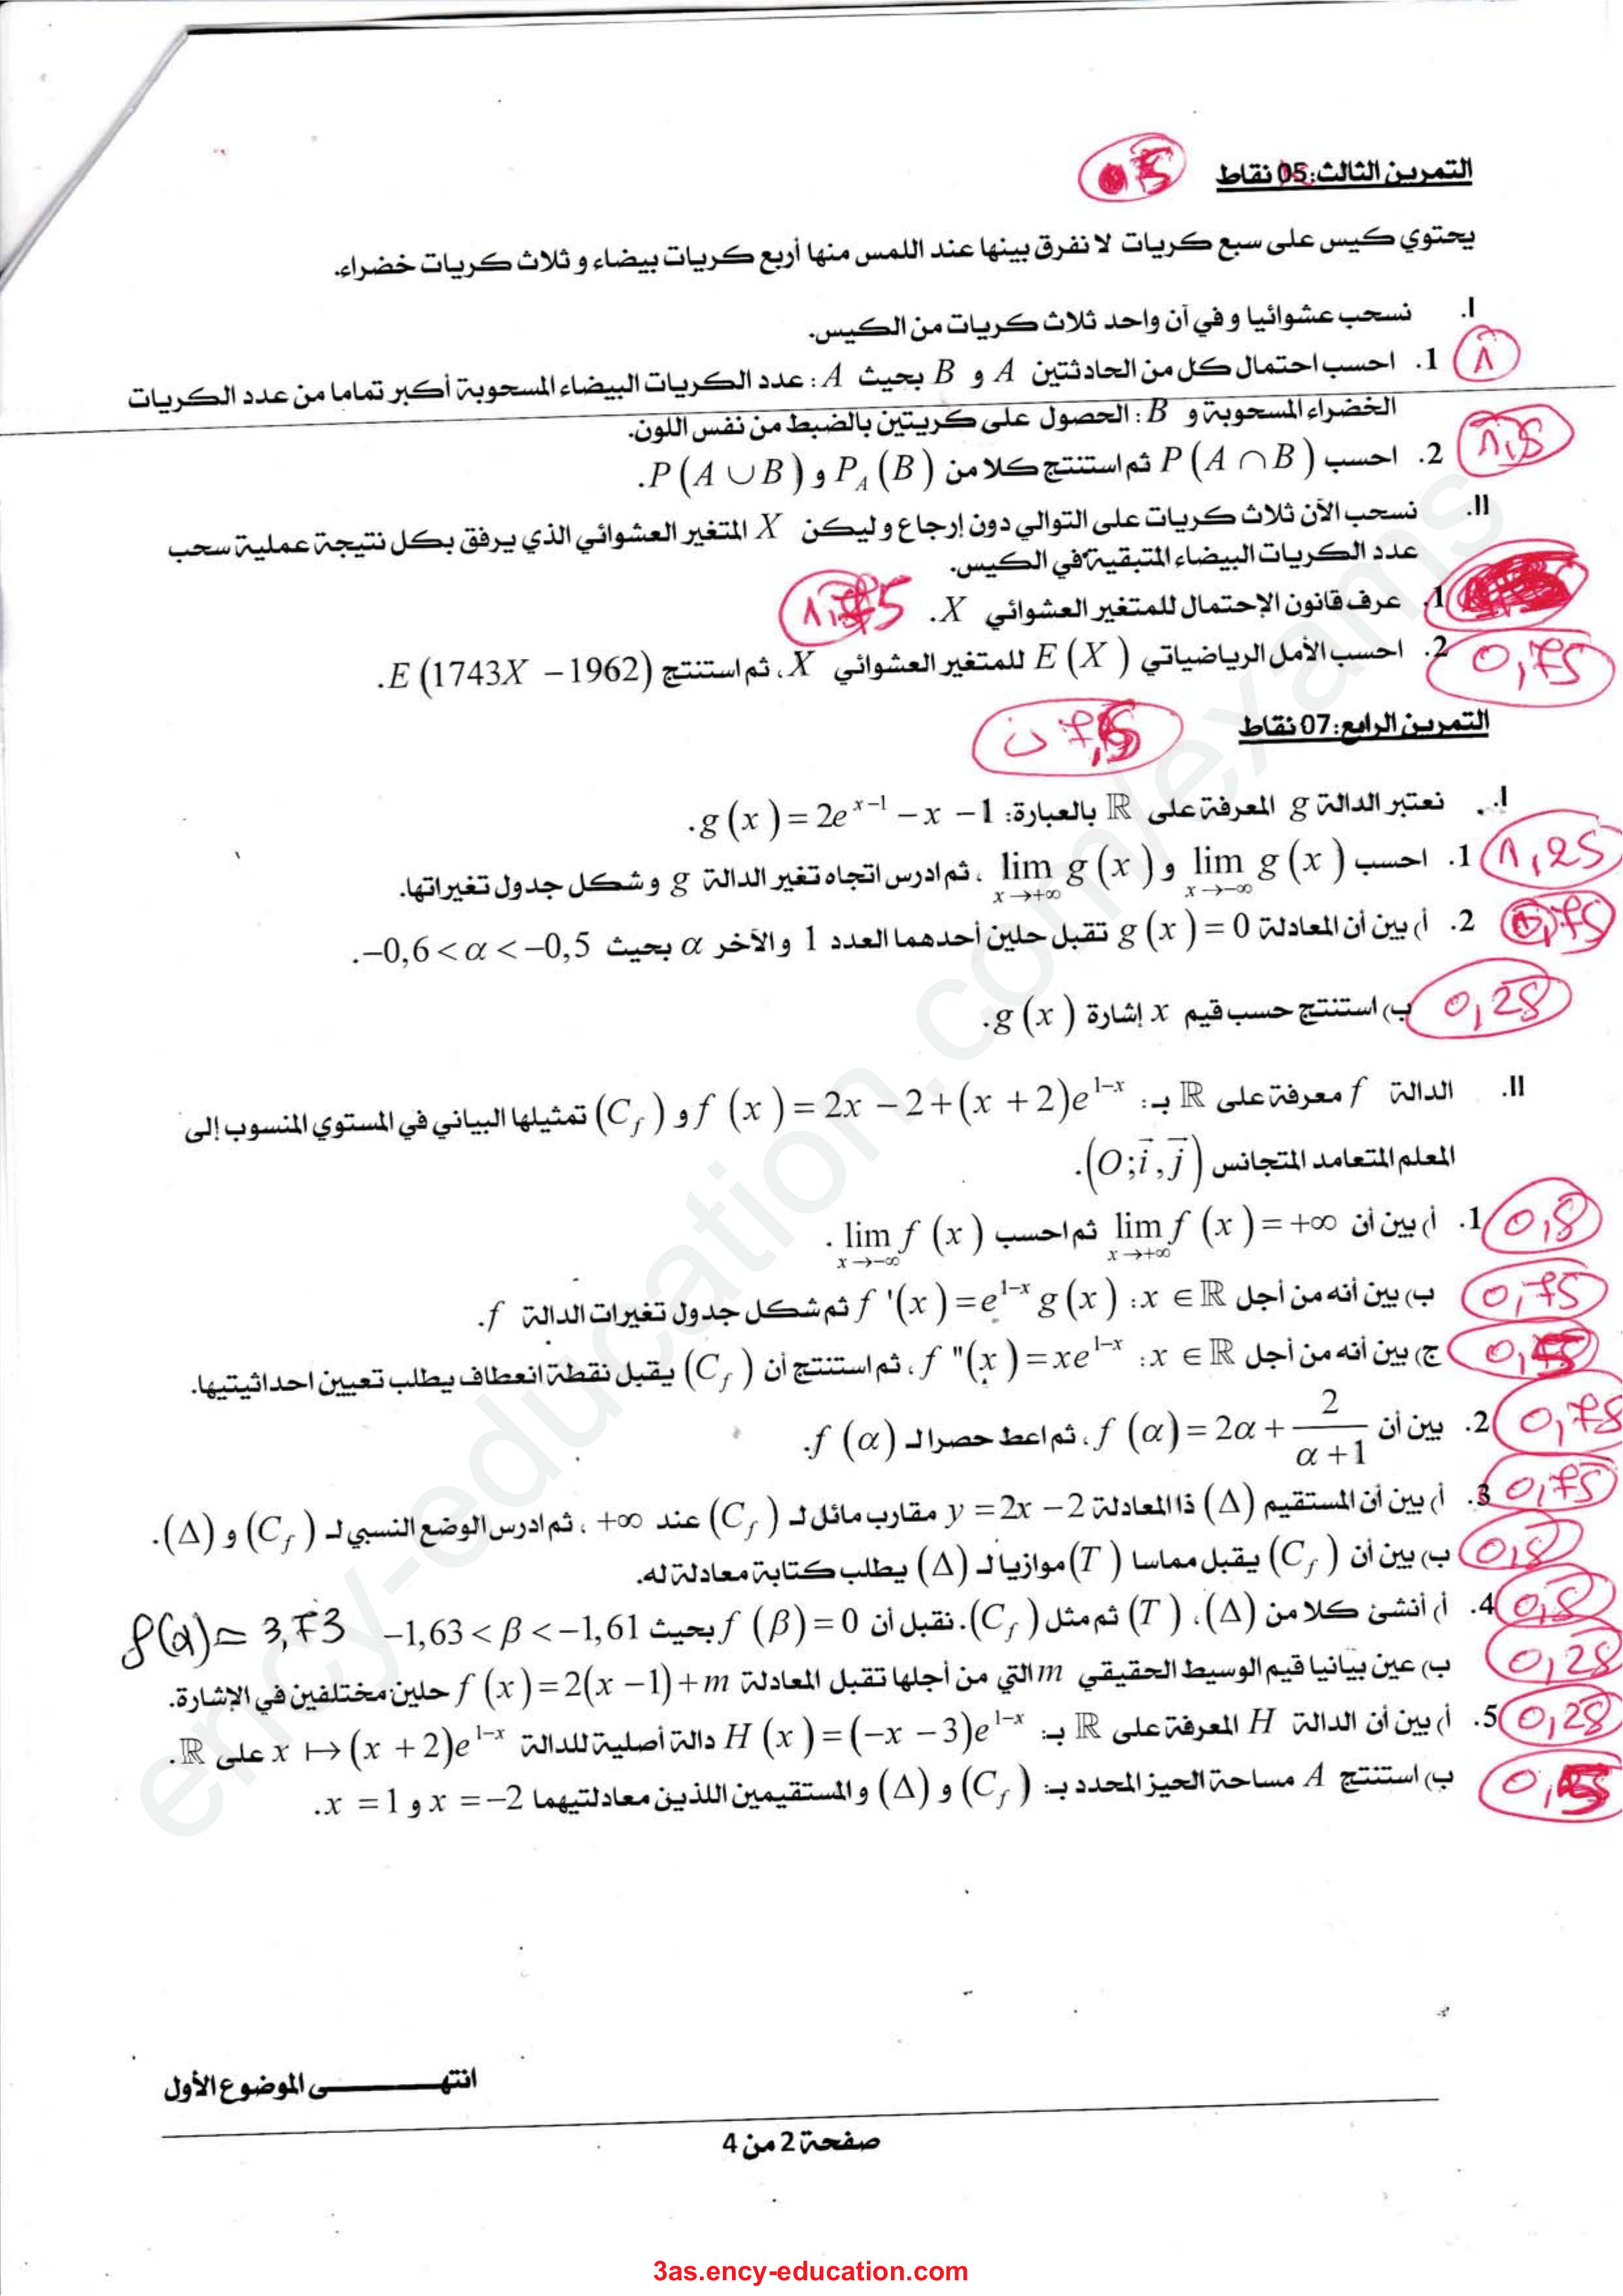 التمرين الثالث: 05 نقاط
05
يحتوي كيس على سبع كريات لا نفرق بينها عند اللمس منها أربع كريات بيضاء و ثلاث كريات خضراء.
I. نسحب عشوائيا و في آن واحد ثلاث كريات من الكيس.
1. احسب احتمال كل من الحادثتين A و B بحيث A : عدد الكريات البيضاء المسحوبة أكبر تماما من عدد الكريات
الخضراء المسحوبة و B : الحصول على كريتين بالضبط من نفس اللون.
1,5
2. احسب P(A ∩ B) ثم استنتج كلا من P_A(B) و P(A ∪ B).
II. نسحب الآن ثلاث كريات على التوالي دون إرجاع و ليكن X المتغير العشوائي الذي يرفق بكل نتيجة عملية سحب
عدد الكريات البيضاء المتبقية في الكيس.
1. عرف قانون الإحتمال للمتغير العشوائي X.
1,75
2. احسب الأمل الرياضياتي E(X) للمتغير العشوائي X، ثم استنتج E(1743X − 1962).
0,75
التمرين الرابع: 07 نقاط
I. نعتبر الدالة g المعرفة على ℝ بالعبارة: g(x) = 2e^{x−1} − x − 1.
1. احسب lim_{x→−∞} g(x) و lim_{x→+∞} g(x) ، ثم ادرس اتجاه تغير الدالة g و شكل جدول تغيراتها.
1,25
2. أ) بين أن المعادلة g(x) = 0 تقبل حلين أحدهما العدد 1 والآخر α بحيث −0,6 < α < −0,5.
0,75
ب) استنتج حسب قيم x إشارة g(x).
0,25
II. الدالة f معرفة على ℝ بـ: f(x) = 2x − 2 + (x + 2)e^{1−x} و (C_f) تمثيلها البياني في المستوي المنسوب إلى
المعلم المتعامد المتجانس (O; i, j).
1. أ) بين أن lim_{x→+∞} f(x) = +∞ ثم احسب lim_{x→−∞} f(x).
0,5
ب) بين أنه من أجل x ∈ ℝ: f'(x) = e^{1−x} g(x) ثم شكل جدول تغيرات الدالة f.
0,75
ج) بين أنه من أجل x ∈ ℝ: f''(x) = xe^{1−x} ، ثم استنتج أن (C_f) يقبل نقطة انعطاف يطلب تعيين احداثيتيها.
2. بين أن f(α) = 2α + 2/(α + 1) ، ثم اعط حصرا لـ f(α).
0,75
3. أ) بين أن المستقيم (Δ) ذا المعادلة y = 2x − 2 مقارب مائل لـ (C_f) عند +∞ ، ثم ادرس الوضع النسبي لـ (C_f) و (Δ).
0,75
ب) بين أن (C_f) يقبل مماسا (T) موازيا لـ (Δ) يطلب كتابة معادلة له.
0,5
4. أ) أنشئ كلا من (Δ)، (T) ثم مثل (C_f). نقبل أن f(β) = 0 بحيث −1,63 < β < −1,61
0,5
f(α) = 3,73
ب) عين بيانيا قيم الوسيط الحقيقي m التي من أجلها تقبل المعادلة f(x) = 2(x − 1) + m حلين مختلفين في الإشارة.
0,25
5. أ) بين أن الدالة H المعرفة على ℝ بـ: H(x) = (−x − 3)e^{1−x} دالة أصلية للدالة x ↦ (x + 2)e^{1−x} على ℝ.
0,25
ب) استنتج A مساحة الحيز المحدد بـ: (C_f) و (Δ) و المستقيمين اللذين معادلتيهما x = −2 و x = 1.
انتهـــــــى الموضوع الأول
صفحة 2 من 4
ency-education.com/exams
3as.ency-education.com